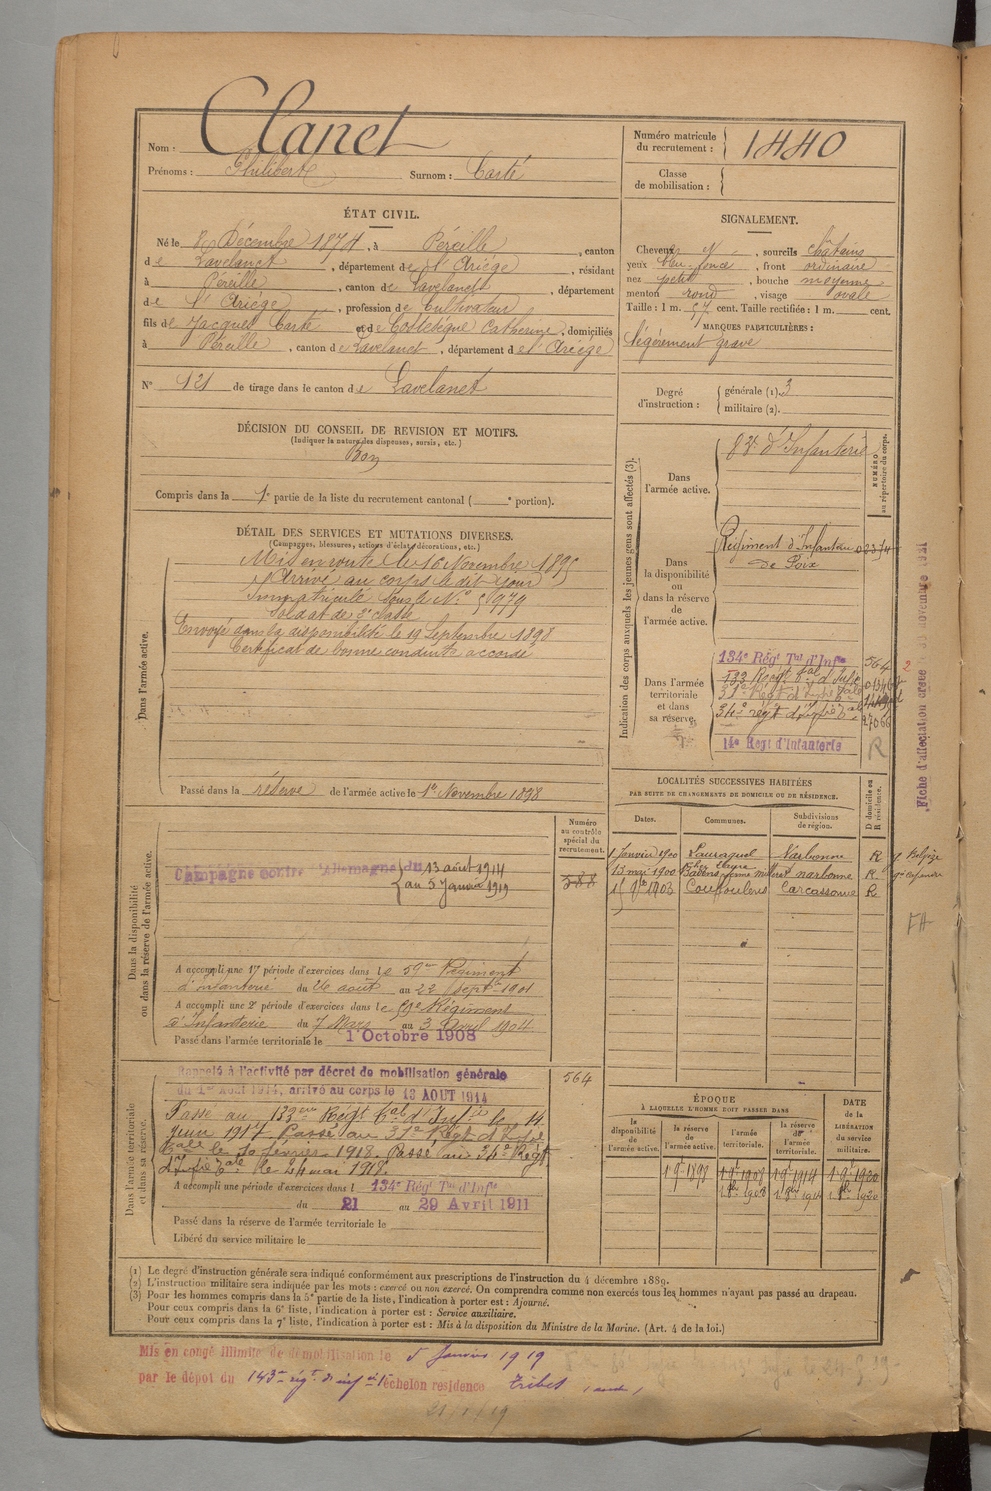 Nom : Clanet
Prénoms : Philibert Surnom : Carté
Numéro matricule
du recrutement : 1440
Classe
de mobilisation :
ÉTAT CIVIL.
Né le 8 Décembre 1874, à Péreille, canton
de Lavelanet, département de l'Ariège, résidant
à Péreille, canton de Lavelanet, département
de l'Ariège, profession de Cultivateur
fils de Jacques Carté et de Catherine, domiciliés
à Péreille, canton de Lavelanet, département de l'Ariège
N° 121 de tirage dans le canton de Lavelanet
SIGNALEMENT.
Cheveux, sourcils châtains
yeux bleu foncé, front ordinaire
nez petit, bouche moyenne
menton rond, visage ovale
Taille : 1 m. 57 cent. Taille rectifiée : 1 m. cent.
MARQUES PARTICULIÈRES :
légèrement gravé
Degré
d'instruction : générale (1). 3
militaire (2).
DÉCISION DU CONSEIL DE REVISION ET MOTIFS.
(Indiquer la nature des dispenses, sursis, etc.)
Bon
Compris dans la 1e partie de la liste du recrutement cantonal ( e portion).
DÉTAIL DES SERVICES ET MUTATIONS DIVERSES.
(Campagnes, blessures, actions d'éclat, décorations, etc.)
Dans l'armée active.
Mis en route le 16 Novembre 1895
Arrivé au corps le dit jour
Immatriculé sous le N° 5979
Soldat de 2e classe
Envoyé dans la disponibilité le 19 Septembre 1898
Certificat de bonne conduite accordé
Passé dans la réserve de l'armée active le 1er Novembre 1898
Indication des corps auxquels les jeunes gens sont affectés (3).
NUMÉRO
au répertoire du corps.
Dans
l'armée active.
83e d'Infanterie
Dans
la disponibilité
ou dans
la réserve
de
l'armée active.
Régiment d'Infanterie 03374
de Foix
Dans l'armée
territoriale
et dans
sa réserve.
134e Régt Tal d'Infie 564
133 Régt Tal d'Infie
31e Régt d'Infie Tale
34e régt d'Infie Tale
14e Régt d'Infanterie
R
Fiche d'affectation créée le novembre 1921
LOCALITÉS SUCCESSIVES HABITÉES
PAR SUITE DE CHANGEMENTS DE DOMICILE OU DE RÉSIDENCE.
Dates. Communes. Subdivisions
de région. D domicile ou
R résidence.
1 Janvier 1900 Lauraguel Narbonne R
13 mai 1900 Badens Narbonne R
15 1903 Couffoulens Carcassonne R
Dans la disponibilité
ou dans la réserve de l'armée active.
Numéro
au contrôle
spécial du
recrutement.
588
Campagne contre l'Allemagne du 13 août 1914
au 5 Janvier 1919
A accompli une 1re période d'exercices dans le 59me Régiment
d'infanterie du 26 août au 22 Septre 1901
A accompli une 2e période d'exercices dans le 59e Régiment
d'Infanterie du 7 Mars au 3 Avril 1904
Passé dans l'armée territoriale le 1 Octobre 1908
Dans l'armée territoriale
et dans sa réserve.
564
Rappelé à l'activité par décret de mobilisation générale
du 1er Août 1914, arrivé au corps le 13 AOUT 1914
Passé au 133me Régt Tal d'Infie le 14
Juin 1917 Passé au 31e Régt d'Infie
Tale le 10 février 1918. Passé au 34e Régt
d'Infie Tale le 24 mai 1918.
A accompli une période d'exercices dans l 134e Régt Tal d'Infie
du 21 au 29 Avril 1911
Passé dans la réserve de l'armée territoriale le
Libéré du service militaire le
ÉPOQUE
À LAQUELLE L'HOMME DOIT PASSER DANS
DATE
de la
LIBÉRATION
du service
militaire.
la
disponibilité
de
l'armée active. la réserve
de
l'armée active. l'armée
territoriale. la réserve
de
l'armée
territoriale.
1 9bre 1898 1 9bre 1908 1 9bre 1914 1 9bre 1920
1 8bre 1908 1 8bre 1914 1 8bre 1920
(1) Le degré d'instruction générale sera indiqué conformément aux prescriptions de l'instruction du 4 décembre 1889.
(2) L'instruction militaire sera indiquée par les mots : exercé ou non exercé. On comprendra comme non exercés tous les hommes n'ayant pas passé au drapeau.
(3) Pour les hommes compris dans la 5e partie de la liste, l'indication à porter est : Ajourné.
Pour ceux compris dans la 6e liste, l'indication à porter est : Service auxiliaire.
Pour ceux compris dans la 7e liste, l'indication à porter est : Mis à la disposition du Ministre de la Marine. (Art. 4 de la loi.)
Mis en congé illimité de démobilisation le 5 Janvier 1919
par le dépôt du 143e régt d'inf échelon résidence Trèbes (aude)
21/1/19